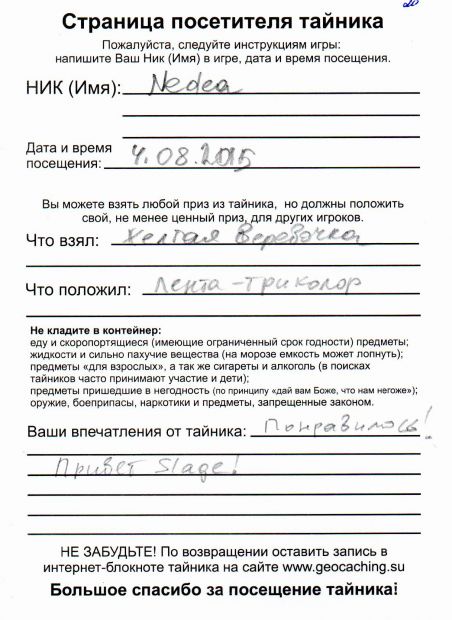 Страница посетителя тайника
Пожалуйста, следуйте инструкциям игры:
напишите Ваш Ник (Имя) в игре, дата и время посещения.
НИК (Имя): Nedea
Дата и время
посещения: 4.08.2015
Вы можете взять любой приз из тайника, но должны положить
свой, не менее ценный приз, для других игроков.
Что взял: Желтая Веревочка
Что положил: Лента-триколор
Не кладите в контейнер:
еду и скоропортящиеся (имеющие ограниченный срок годности) предметы;
жидкости и сильно пахучие вещества (на морозе емкость может лопнуть);
предметы «для взрослых», а так же сигареты и алкоголь (в поисках
тайников часто принимают участие и дети);
предметы пришедшие в негодность (по принципу «дай вам Боже, что нам негоже»);
оружие, боеприпасы, наркотики и предметы, запрещенные законом.
Ваши впечатления от тайника: Понравилось!
Привет Slage!
НЕ ЗАБУДЬТЕ! По возвращении оставить запись в
интернет-блокноте тайника на сайте www.geocaching.su
Большое спасибо за посещение тайника!